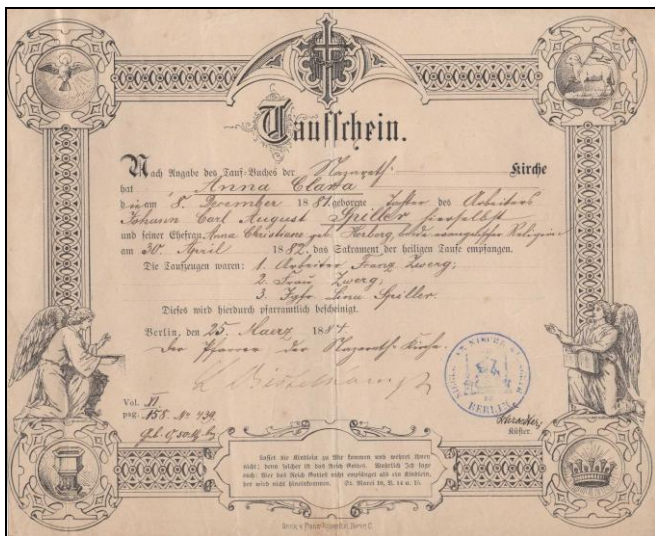 Taufschein.
Nach Angabe des Tauf-Buches der Nazareth Kirche
hat Anna Clara
die am 8. December 1881 geborene Tochter des Arbeiters
Johann Carl August Spiller hierselbst
und seiner Ehefrau Anna Christiane geb. evangelischer Religion
am 30. April 1882, das Sakrament der heiligen Taufe empfangen.
Die Taufzeugen waren: 1. Arbeiter Franz Zwerg;
2. Frau Zwerg;
3. Igfr. Lina Spiller.
Dieses wird hierdurch pfarramtlich bescheinigt.
Berlin, den 25. Maerz 1884.
Der Pfarrer der Nazareth-Kirche.
Vol. VI.
pag. 158. No 439.
Küster.
BERLIN
Lasset die Kindlein zu Mir kommen und wehret ihnen
nicht; denn solcher ist das Reich Gottes. Wahrlich Ich sage
euch: Wer das Reich Gottes nicht empfänget als ein Kindlein,
der wird nicht hineinkommen. Ev. Marci 10, V. 14 u. 15.